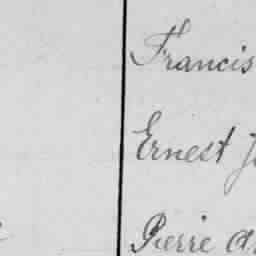 Francis
Ernest
Pierre